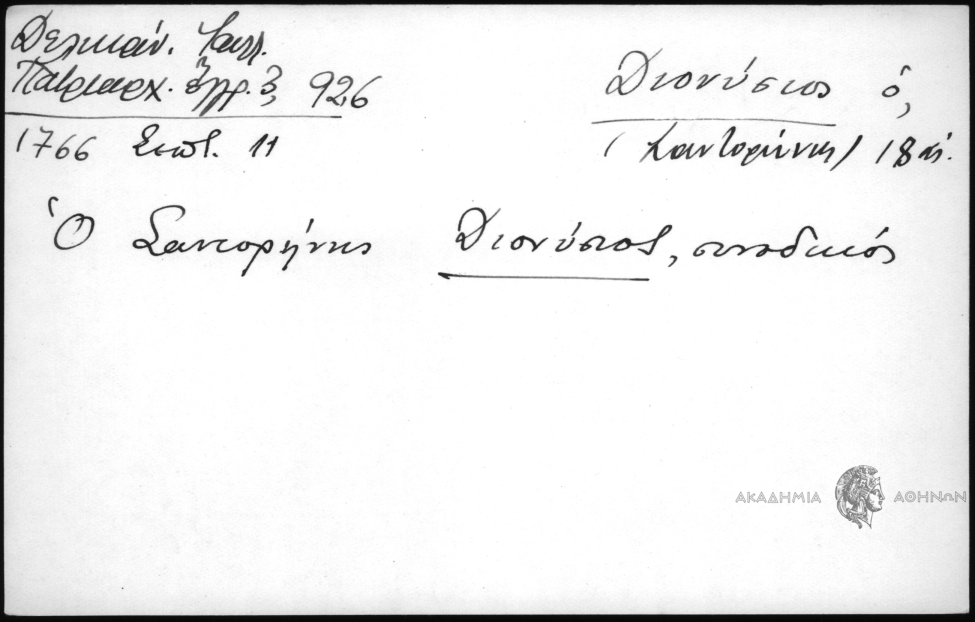 Δελικάν. Καλλ.
Πατριαρχ. ἔγγρ. 3, 926
1766 Σεπτ. 11
Διονύσιος ὁ,
(Σαντορίνης) 18 αἰ.
Ὁ Σαντορήνης Διονύσιος, συνοδικός
ΑΚΑΔΗΜΙΑ ΑΘΗΝΩΝ